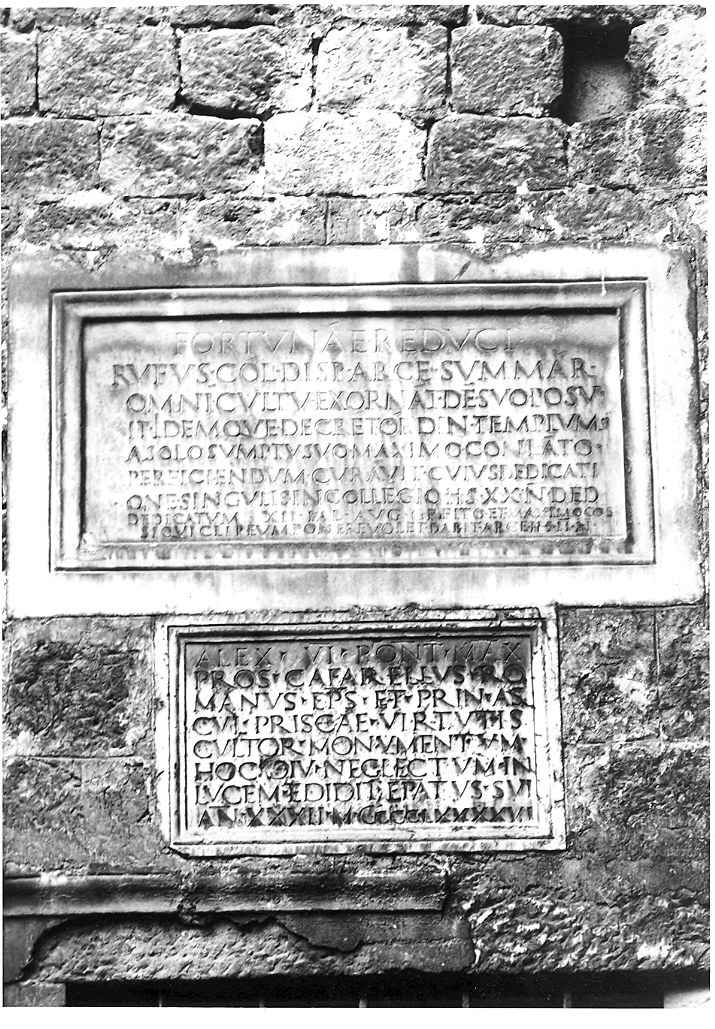 FORTVNÁE REDVCI
RVFVS·COL·DISP·ARCE·SVMMÁR·
OMNI·CVLTV·EXORNÁT·DÉ·SVO·POSV·
IT·IDEMQVE·DECRETO·ORDIN·TEMPLVM·
A·SOLO·SVMPTV·SVO·MAXIMO·CONLÁTO·
PERFICIENDVM·CVRÁVIT·CVIVS·DEDICATI
ONE·SINGVLIS·IN·COLLEGIO·HS·XX·N·DED
DEDICATVM XII AVG ET·MAXIMO·COS
SI·QVI·CLIPEVM·PONERE·VOLET·DABIT·ARCE·HS·
ALEX·VI·PONT·MAX
PROS·CAFARELLVS·RO
MANVS·EPS·ET·PRIN·AS
CVL·PRISCAE·VIRTVTIS
CVLTOR·MONVMENTVM·
HOC·DIV·NEGLECTVM·IN
LVCEM·EDIDIT·EPATVS·SVI
AN·XXXII·M·CCCCLXXXXVI